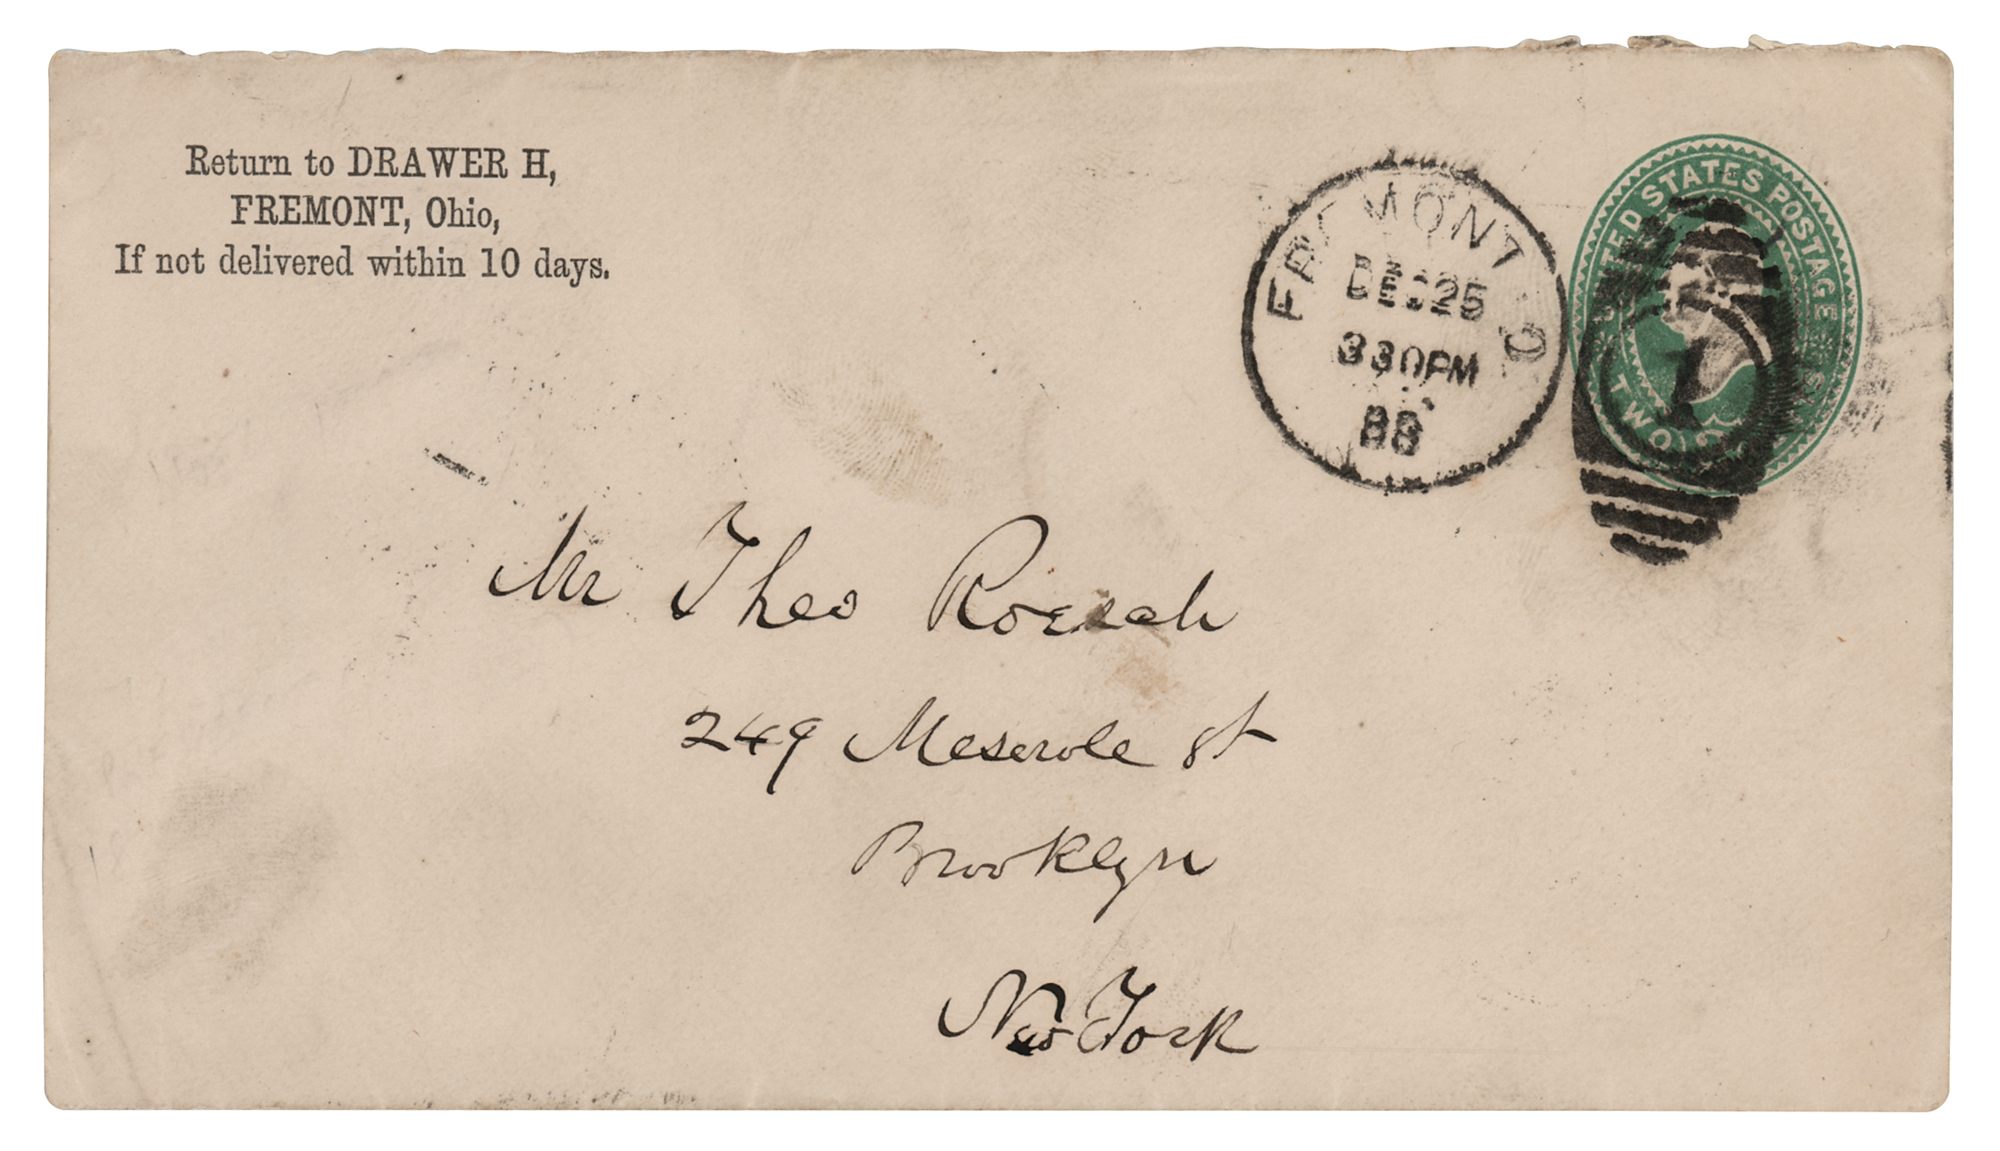 Return to DRAWER H,
FREMONT, Ohio,
If not delivered within 10 days.
FREMONT O
DEC 25
330PM
88
UNITED STATES POSTAGE
TWO
1
Mr Theo Roesch
249 Meserole st
Brooklyn
New York